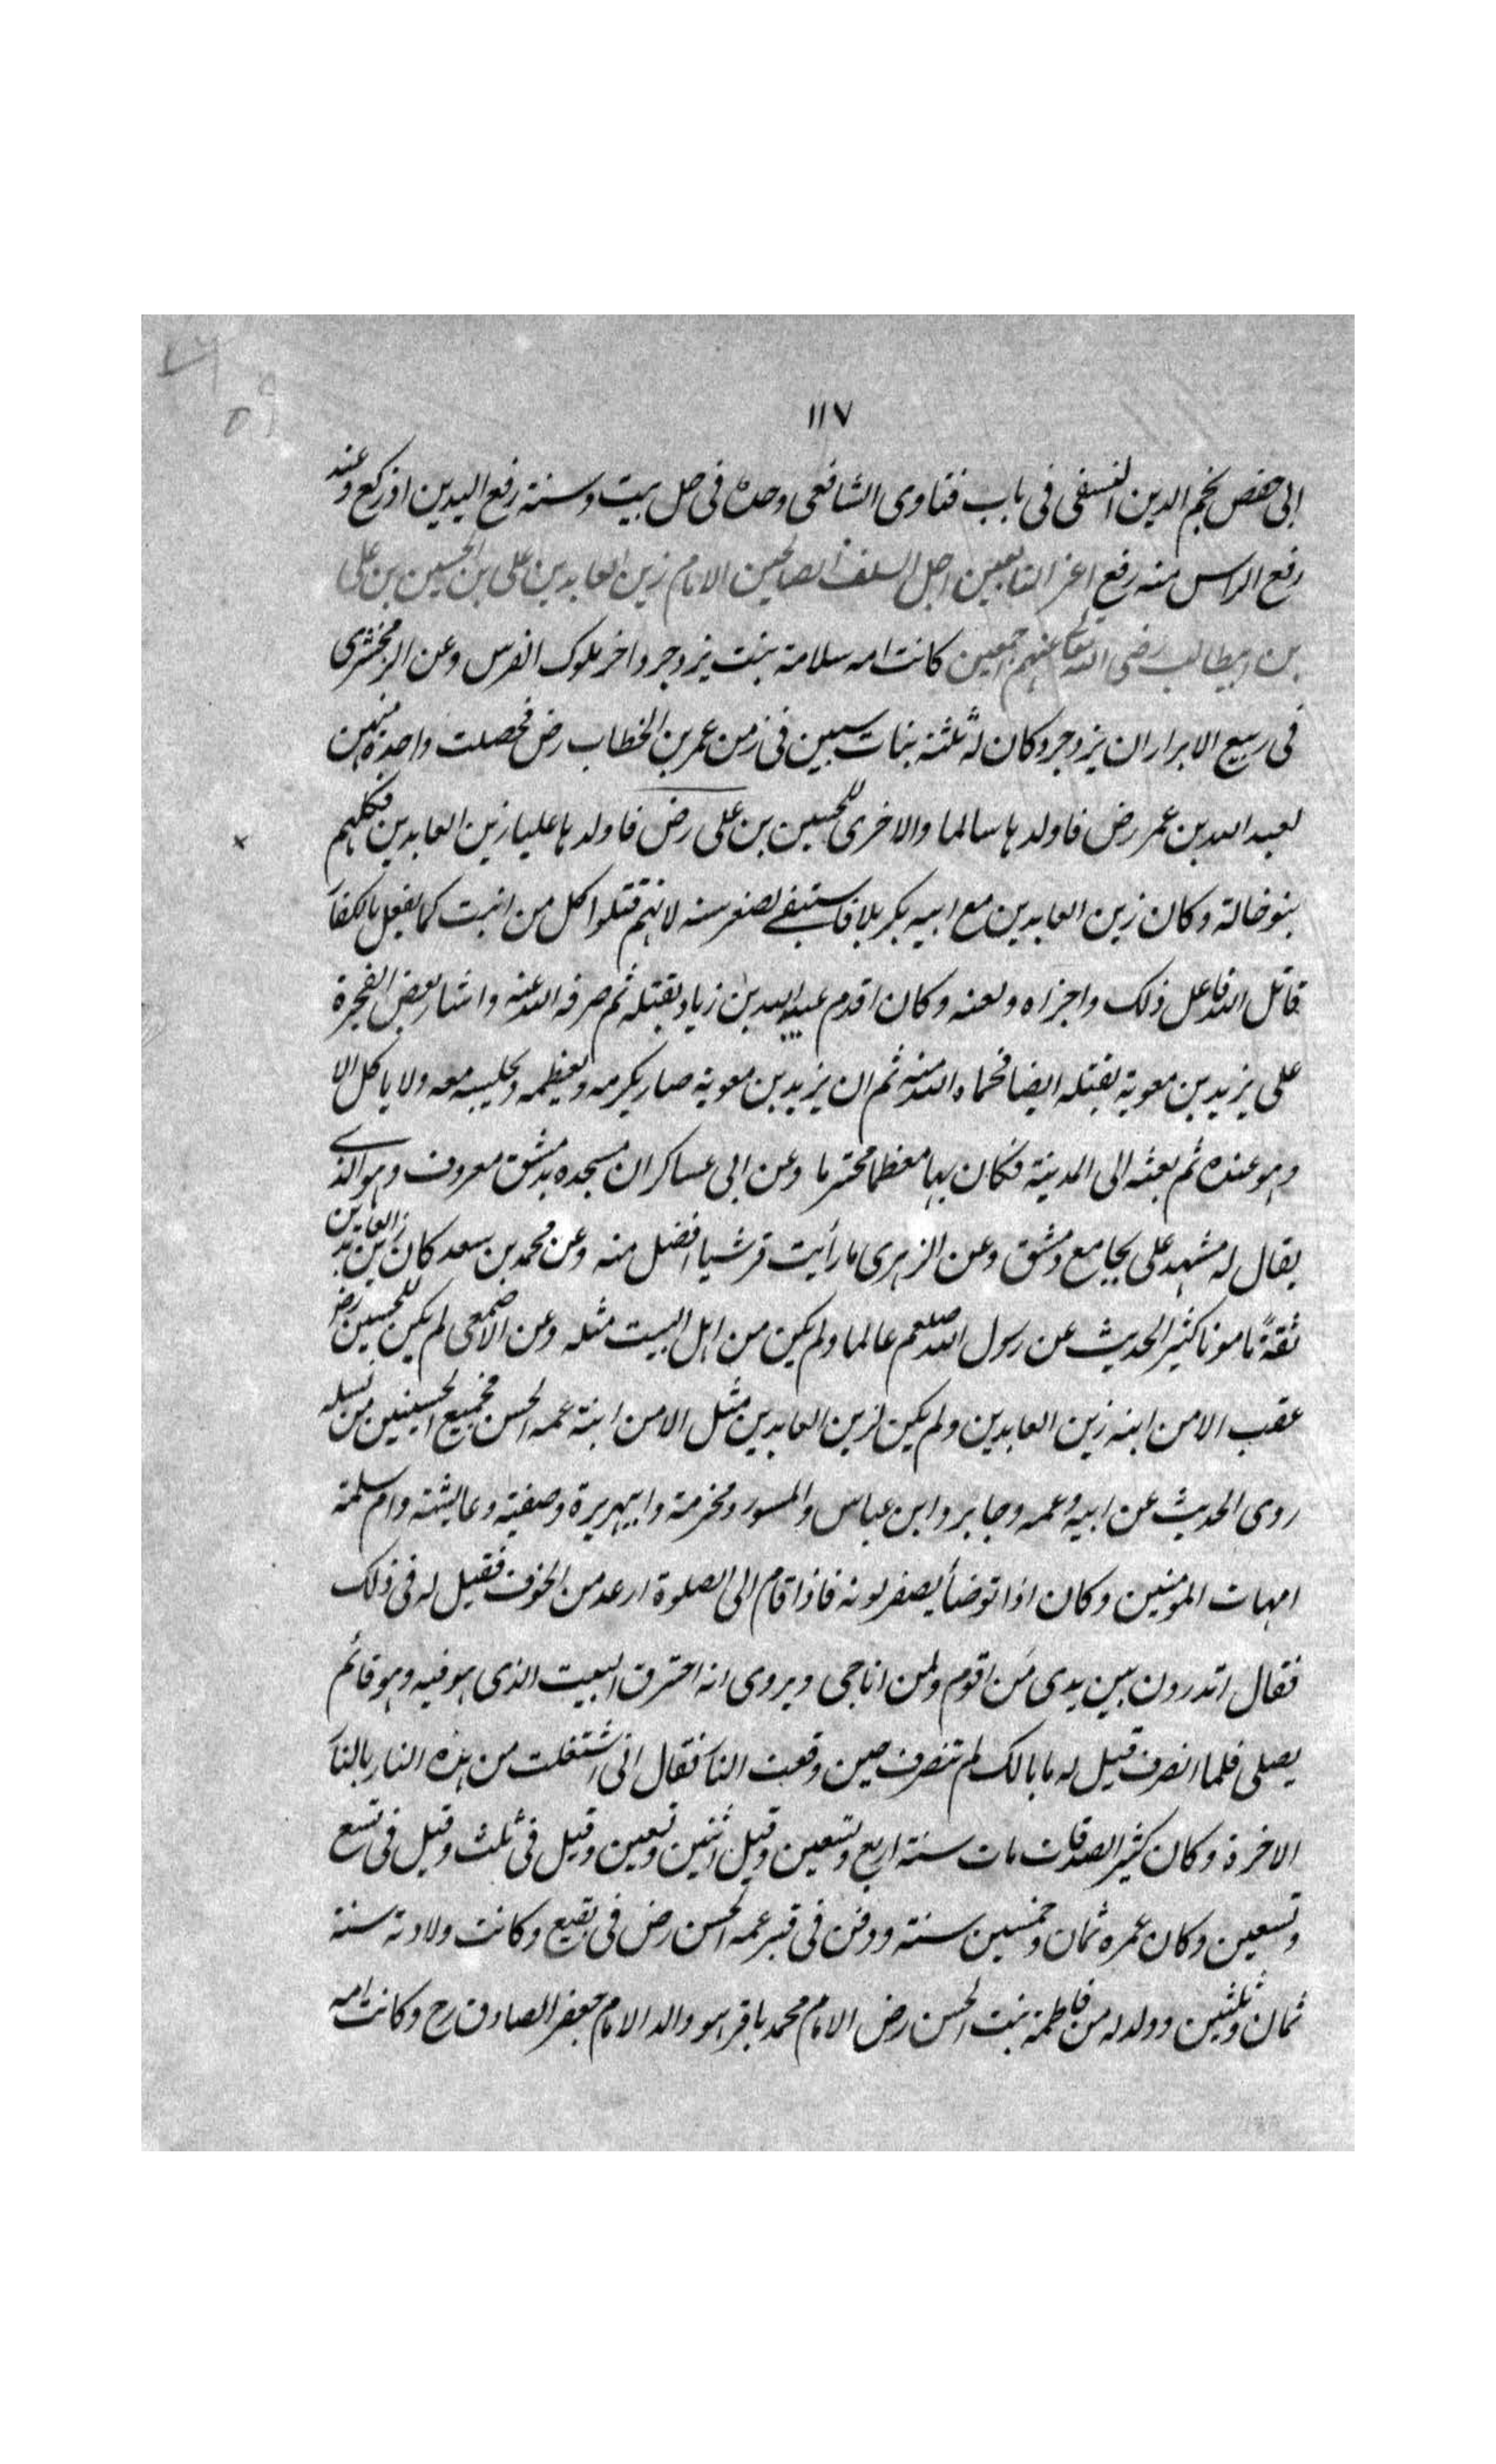 ١١٧
ابى حفص نجم الدين النسفى فى باب فتاوى الشافعى وحده فى صل بيت وسنة رفع اليدين اذ ركع وعند
رفع الراس منه رفع اعز التابعين اجل السلف الصالحين الامام زين العابدين على بن الحسين بن على
بن ابيطالب رضى الله تعالى عنهم اجمعين كانت امه سلامة بنت يزدجرد اخر ملوك الفرس وعن الزمخشرى
فى ربيع الابرار ان يزدجرد كان له ثلثة بنات سبين فى زمن عمر بن الخطاب رض فحصلت واحدة منهن
لعبد الله بن عمر رض فاولدها سالما والاخرى للحسين بن على رض فاولدها عليا زين العابدين فكلهم
بنو خالة وكان زين العابدين مع ابيه بكربلا فاستبقى لصغر سنه لانهم قتلوا كل من انبت كما يفعل بالكفار
قاتل الله فاعل ذلك واجزاه ولعنه وكان اقدم عبيد الله بن زياد بقتله ثم صرفه الله عنه واشار بعض الفجرة
على يزيد بن معوية بقتله ايضا فحماه الله منه ثم ان يزيد بن معوية صار يكرمه ويعظمه ويجلسه معه ولا ياكل الا
وهو عنده ثم بعثه الى المدينة فكان بها معظما محترما وعن ابى عساكر ان مسجده بدمشق معروف وهو الذى
يقال له مشهد على بجامع دمشق وعن الزهرى ما رأيت قرشيا افضل منه وعن محمد بن سعد كان زين العابدين
ثقة مامونا كثير الحديث عن رسول الله صلعم عالما ولم يكن من اهل البيت مثله وعن الاصمعى لم يكن للحسين رض
عقب الا من ابنه زين العابدين ولم يكن لزين العابدين مثل الا من ابنة عمه الحسن فجميع الحسينيين من نسله
روى الحديث عن ابيه وعمه وجابر وابن عباس والمسور ومخرمة وابيهريرة وصفية وعايشة وام سلمة
امهات المؤمنين وكان اذا توضأ يصفر لونه فاذا قام الى الصلوة ارعد من الخوف فقيل له فى ذلك
فقال اتدرون بين يدى من اقوم ولمن اناجى ويروى انه احترق البيت الذى هو فيه وهو قائم
يصلى فلما انصرف قيل له ما بالك لم تنصرف حين وقعت النار فقال انى اشتغلت من هذه النار بالنار
الاخرة وكان كثير الصدقات مات سنة اربع وتسعين وقيل اثنين وتسعين وقيل فى ثلث وقيل فى تسع
وتسعين وكان عمره ثمان وخمسين سنة ودفن فى قبر عمه الحسن رض فى بقيع وكانت ولادته سنة
ثمان وثلثين وولد له من فاطمة بنت الحسن رض الامام محمد باقر هو والد الامام جعفر الصادق رح وكانت امه